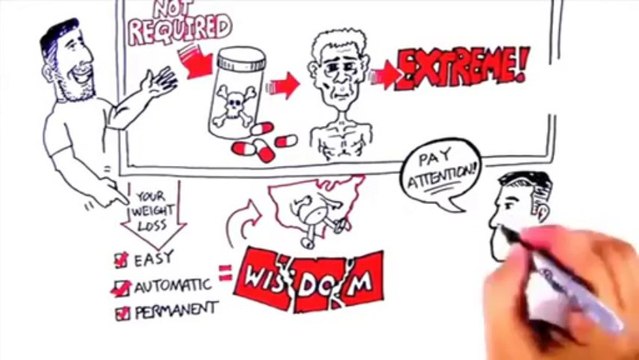 NOT
REQUIRED
EXTREME!
PAY
ATTENTION!
YOUR
WEIGHT
LOSS
EASY
AUTOMATIC
PERMANENT
= WISDOM